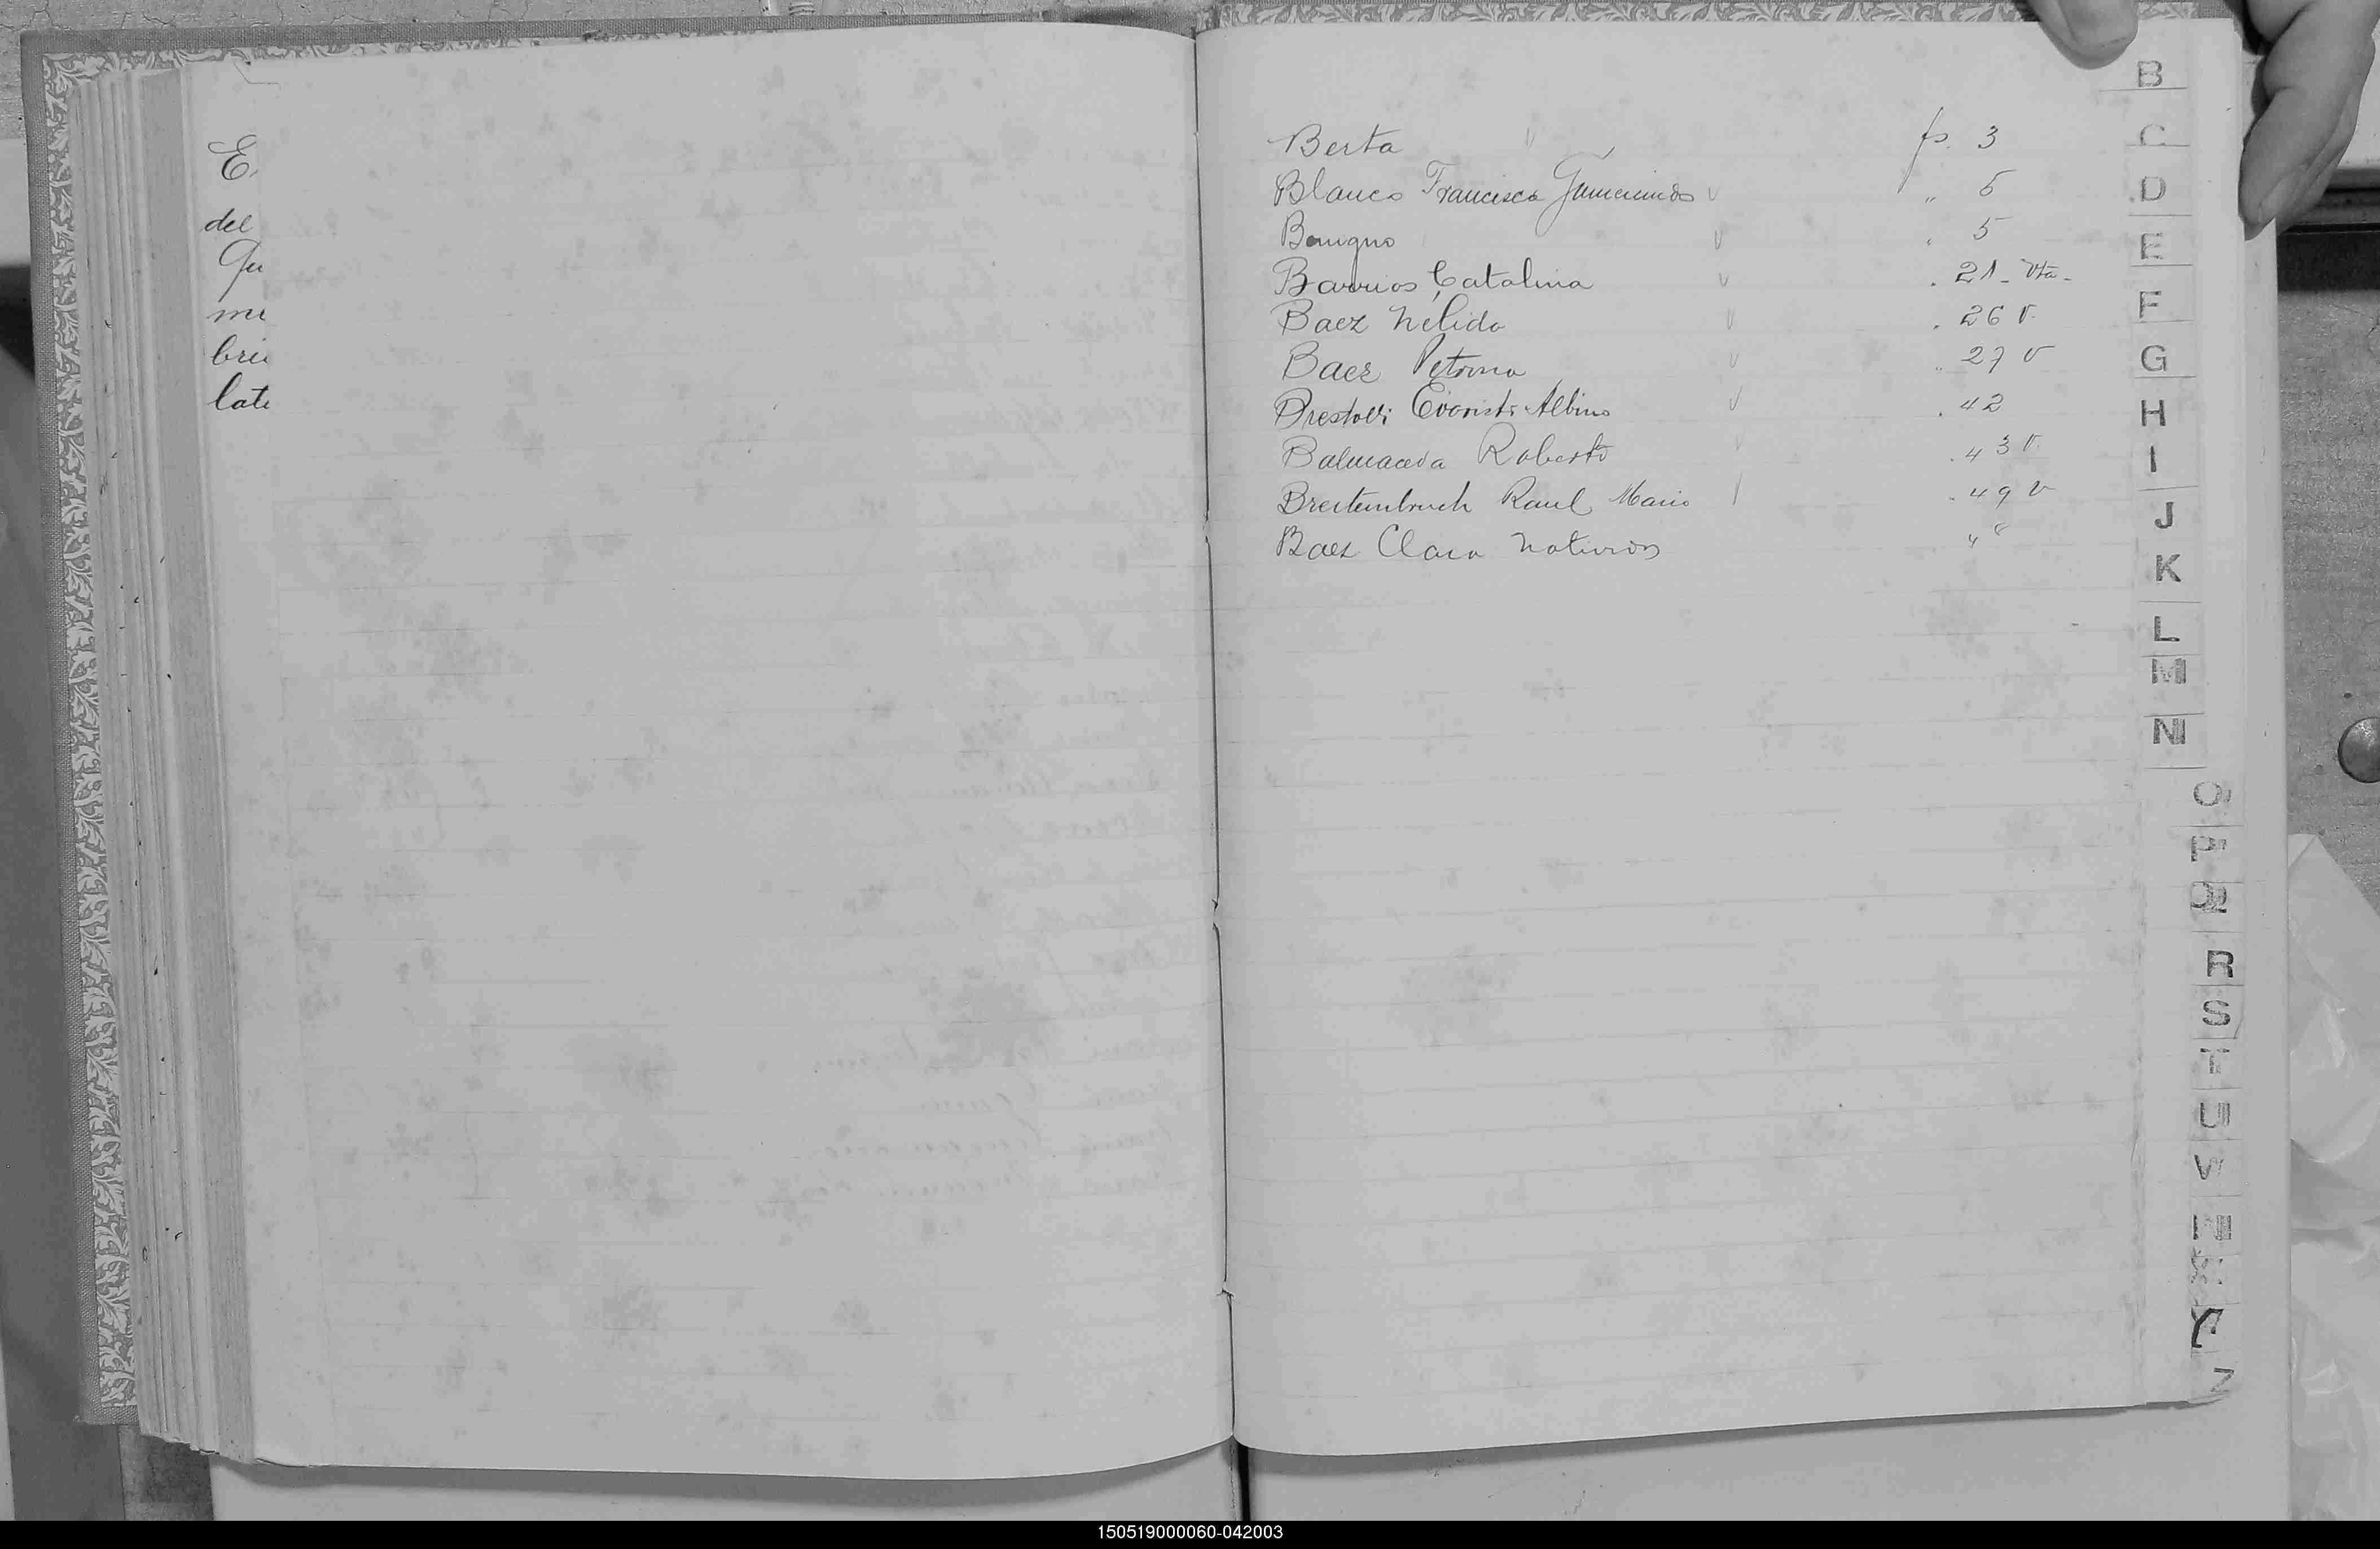 E.
del
Qu
me
brie
late
Berta fs. 3
Blanco Francisco Gumercindo v " 5
Benigno v " 5
Barrios Catalina v . 21 - vta -
Baez Nelida v . 26 v.
Baez Petrona v " 27 v
Evaristo Albino v . 42
Balmaceda Roberto v . 43 v.
Breitembruch Raul Mario . 49 v
Baez Clara
B
C
D
E
F
G
H
I
J
K
L
M
N
O
P
Q
R
S
T
U
V
Y
Z
150519000060-042003